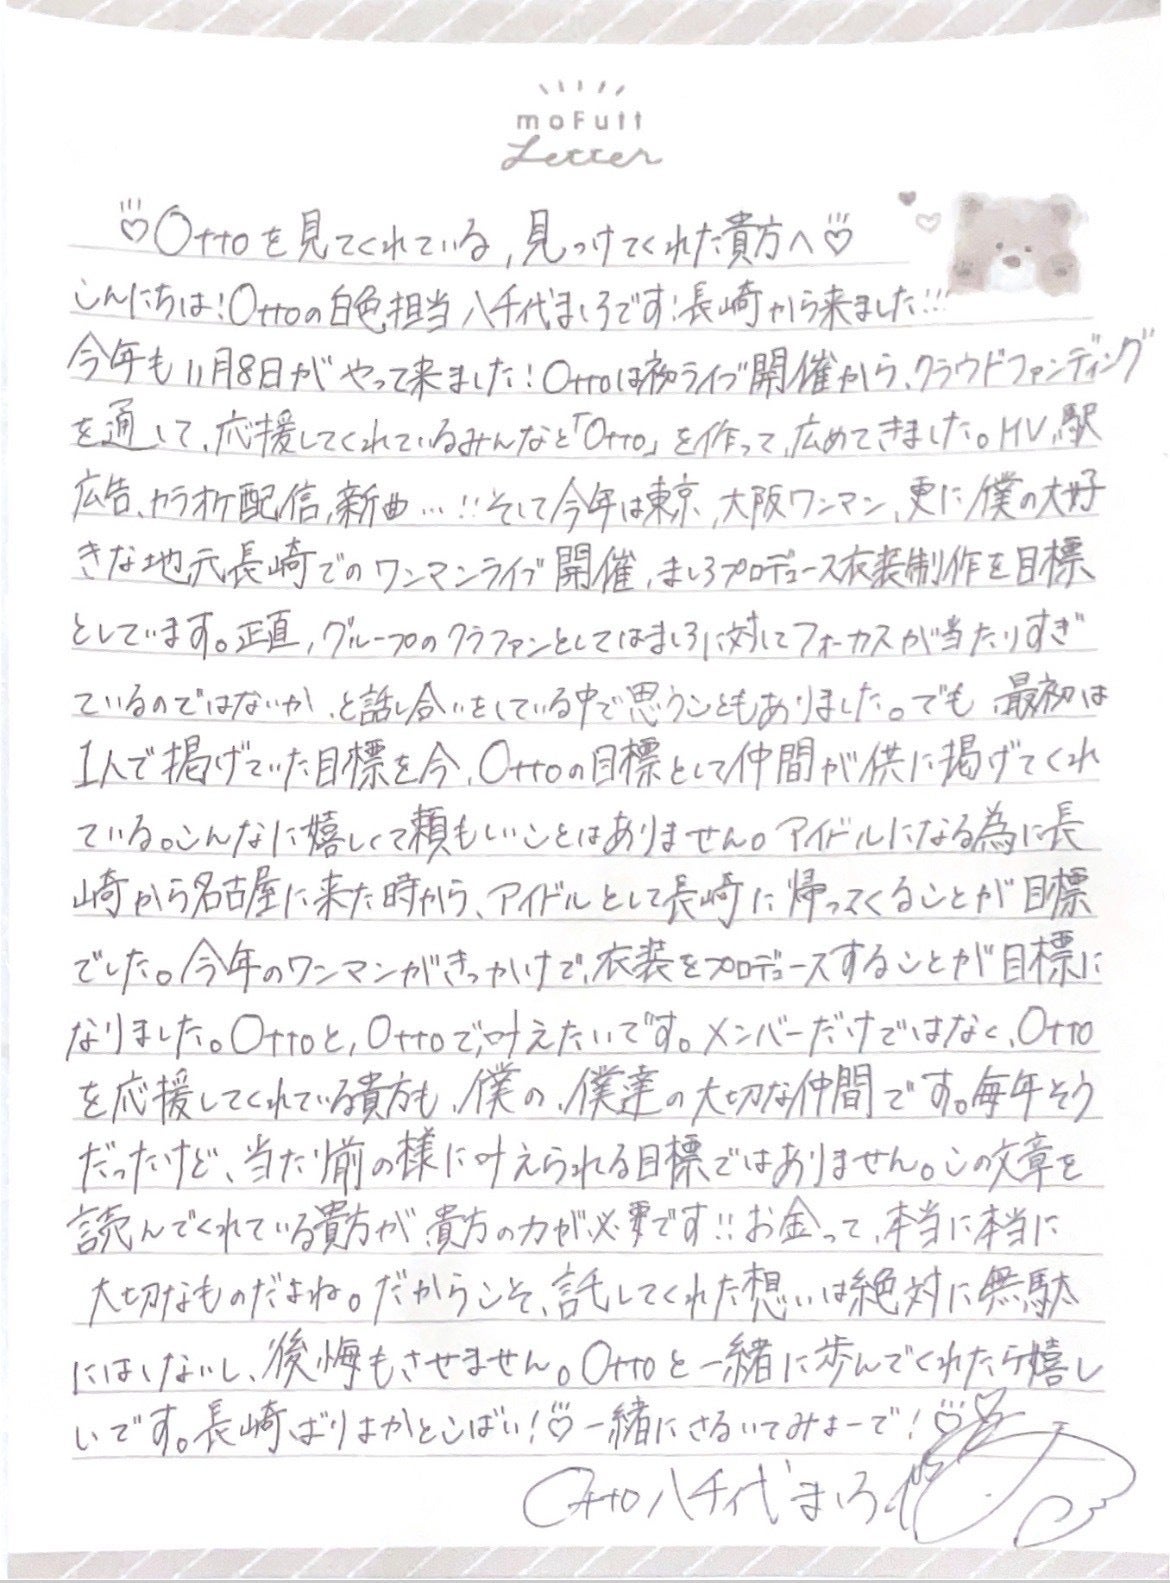 moFutt
Letter
♡Ottoを見てくれている,見つけてくれた貴方へ♡
こんにちは!Ottoの白色担当八千代ましろです!長崎から来ました!!!
今年も11月8日がやって来ました!Ottoは初ライブ開催から、クラウドファンディング
を通して、応援してくれているみんなと「Otto」を作って、広めてきました。MV、駅
広告、カラオケ配信、新曲…!!そして今年は東京、大阪ワンマン、更に僕の大好
きな地元長崎でのワンマンライブ開催、ましろプロデュース衣装制作を目標
としています。正直,グループのクラファンとしてはましろに対してフォーカスが当たりすぎ
ているのではないか、と話し合いをしている中で思うこともありました。でも、最初は
1人で掲げていた目標を今、Ottoの目標として仲間が供に掲げてくれ
ている。こんなに嬉しくて頼もしいことはありません。アイドルになる為に長
崎から名古屋に来た時から、アイドルとして長崎に帰ってくることが目標
でした。今年のワンマンがきっかけで、衣装をプロデュースすることが目標に
なりました。Ottoと,Ottoで、叶えたいです。メンバーだけではなく、Otto
を応援してくれている貴方も、僕の、僕達の大切な仲間です。毎年そう
だったけど、当たり前の様に叶えられる目標ではありません。この文章を
読んでくれている貴方が、貴方の力が必要です!!お金って、本当に本当に
大切なものだよね。だからこそ、託してくれた想いは絶対に無駄
にはしないし、後悔もさせません。Ottoと一緒に歩んでくれたら嬉し
いです。長崎ばりよかとこばい!♡一緒にさるいてみよーで!♡
Otto八千代ましろ